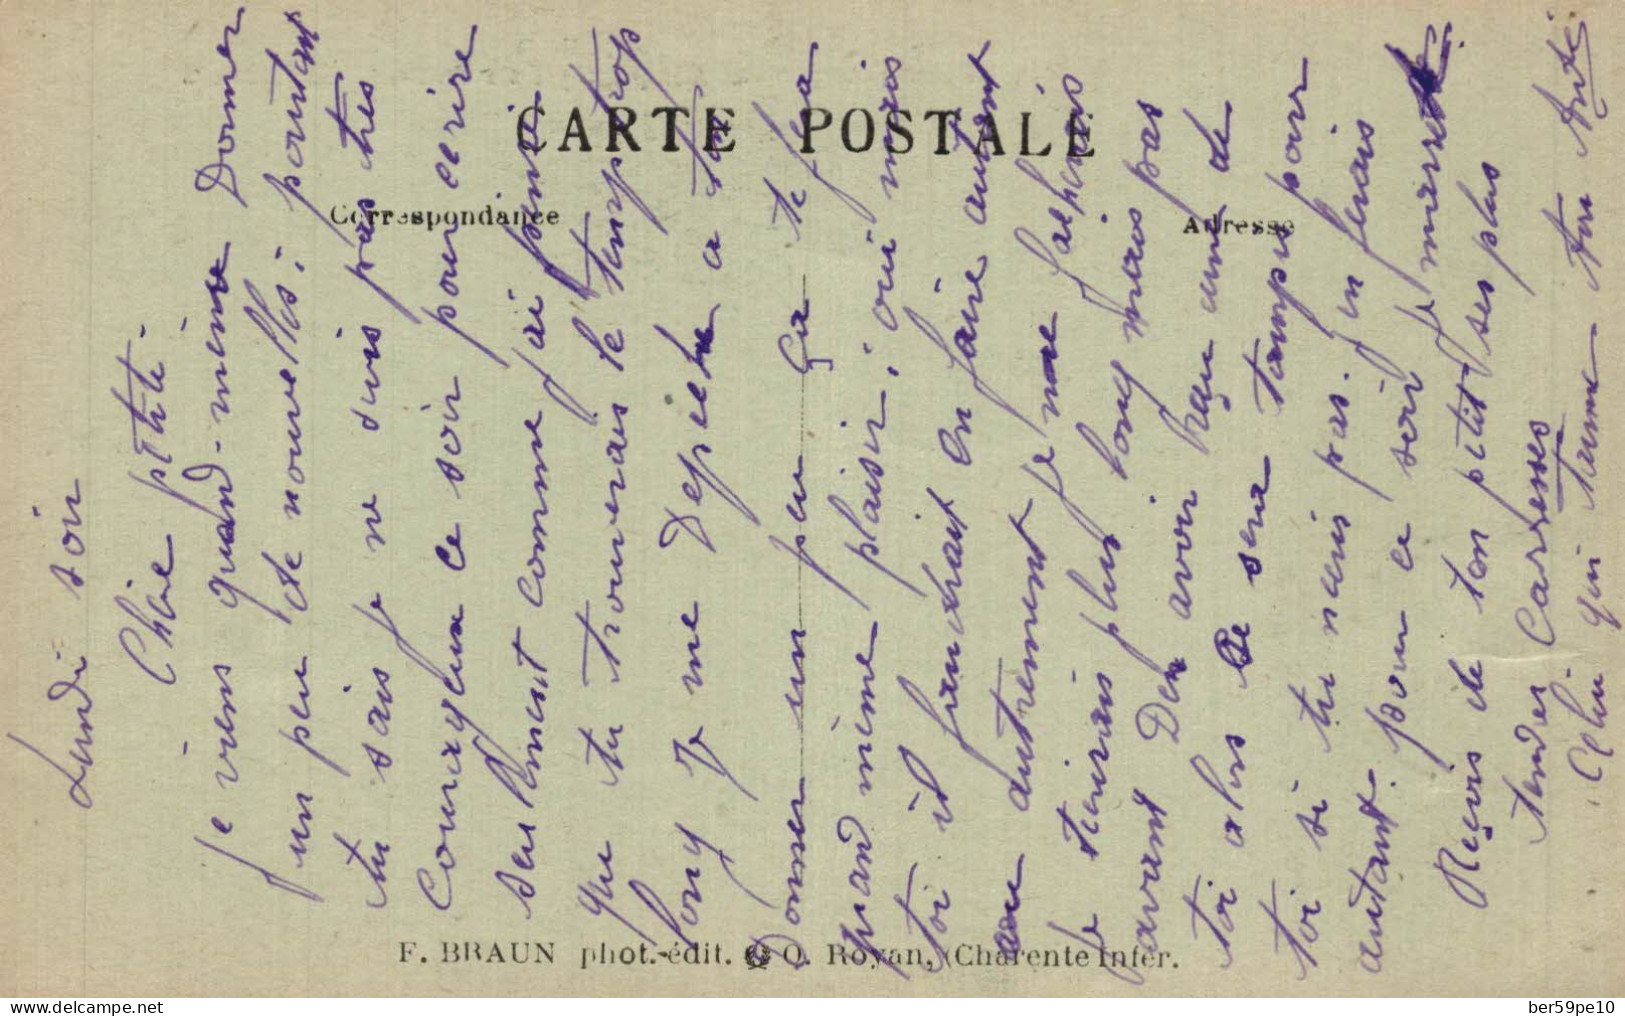 CARTE POSTALE
Correspondance
Adresse
Lundi soir
Chère petite.
Je viens quand-même Donner
un peu de nouvelles; pourtant
tu sais je ne suis pas très
Courageux ce soir pour ecrire
seulement comme j'ai pensé
que tu trouverais le temps trop
long je me Depiche a te
Donner un peu ça te fera
quand même plaisir; oui mais
toi il faudrait en faire autant
au autrement je ne
te plus long mais pas
avant D'en avoir reçu une de
toi alors se sera tampis pour
toi si tu n'ecris pas. j'en ferais
autant. pour ce soir je
Reçois de ton petit ses plus
tendres Carresses
Celui qui t'aime ton
F. BRAUN phot.-édit. Royan, (Charente Infer.
www.delcampe.net
ber59pe10